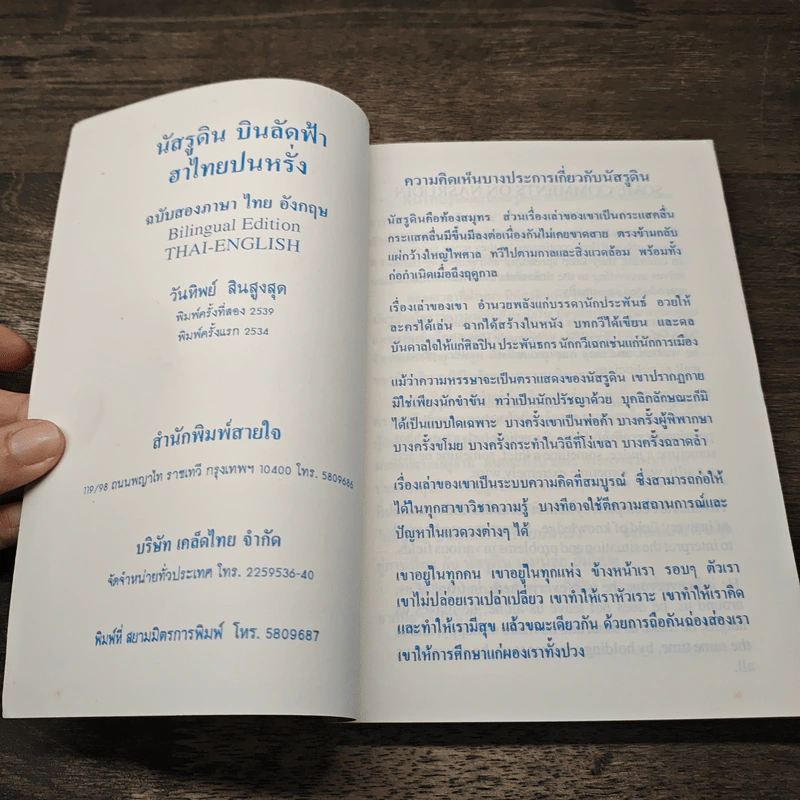 นัสรูดิน บินลัดฟ้า
ฮาไทยปนหรั่ง
ฉบับสองภาษา ไทย อังกฤษ
Bilingual Edition
THAI-ENGLISH
วันทิพย์ สินสูงสุด
พิมพ์ครั้งที่สอง 2539
พิมพ์ครั้งแรก 2534
สำนักพิมพ์สายใจ
119/98 ถนนพญาไท ราชเทวี กรุงเทพฯ 10400 โทร. 5809686
บริษัท เคล็ดไทย จำกัด
จัดจำหน่ายทั่วประเทศ โทร. 2259536-40
พิมพ์ที่ สยามมิตรการพิมพ์ โทร. 5809687
ความคิดเห็นบางประการเกี่ยวกับนัสรูดิน
นัสรูดินคือท้องสมุทร ส่วนเรื่องเล่าของเขาเป็นกระแสคลื่น
กระแสคลื่นมีขึ้นมีลงต่อเนื่องกันไม่เคยขาดสาย ตรงข้ามกลับ
แผ่กว้างใหญ่ไพศาล ทวีไปตามกาลและสิ่งแวดล้อม พร้อมทั้ง
ก่อกำเนิดเมื่อถึงฤดูกาล
เรื่องเล่าของเขา อำนวยพลังแก่บรรดานักประพันธ์ อวยให้
ละครได้เล่น ฉากได้สร้างในหนัง บทกวีได้เขียน และดล
บันดาลใจให้แก่ศิลปิน ประพันธกร นักกวีเฉกเช่นแก่นักการเมือง
แม้ว่าความหรรษาจะเป็นตราแสดงของนัสรูดิน เขาปรากฏกาย
มิใช่เพียงนักขำขัน ทว่าเป็นนักปรัชญาด้วย บุคลิกลักษณะก็มิ
ได้เป็นแบบใดเฉพาะ บางครั้งเขาเป็นพ่อค้า บางครั้งผู้พิพากษา
บางครั้งขโมย บางครั้งกระทำในวิถีที่โง่เขลา บางครั้งฉลาดล้ำ
เรื่องเล่าของเขาเป็นระบบความคิดที่สมบูรณ์ ซึ่งสามารถก่อให้
ได้ในทุกสาขาวิชาความรู้ บางทีอาจใช้ตีความสถานการณ์และ
ปัญหาในแวดวงต่างๆ ได้
เขาอยู่ในทุกคน เขาอยู่ในทุกแห่ง ข้างหน้าเรา รอบๆ ตัวเรา
เขาไม่ปล่อยเราเปล่าเปลี่ยว เขาทำให้เราหัวเราะ เขาทำให้เราคิด
และทำให้เรามีสุข แล้วขณะเดียวกัน ด้วยการถือกันฉ่องสองเรา
เขาให้การศึกษาแก่ผองเราทั้งปวง